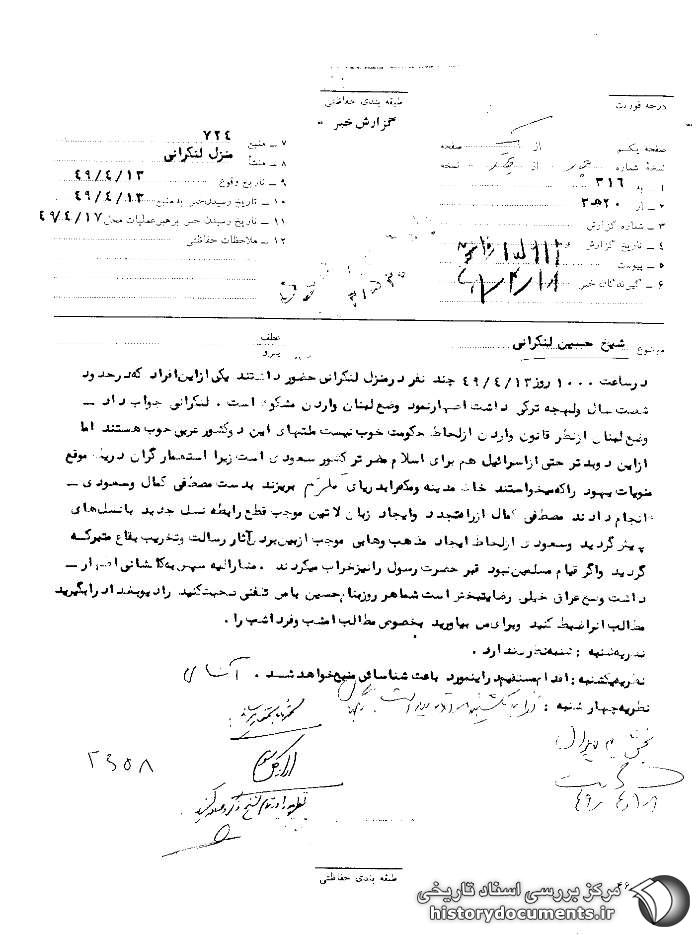 طبقه بندی حفاظتی
درجه فوریت
گزارش خبر
صفحه یکم از یک صفحه
نسخهٔ شماره از نسخه
۱ - به ۳۱۶
۲ - از ۲۰ ه‍ ۳
۳ - شماره گزارش
۴ - تاریخ گزارش
۵ - پیوست
۶ - گیرندگان خبر
۷ - منبع ۷۲۴
۸ - منشأ منزل لنکرانی
۹ - تاریخ وقوع ۴۹/۴/۱۳
۱۰ - تاریخ رسیدن خبر به منبع ۴۹/۴/۱۳
۱۱ - تاریخ رسیدن خبر برهبر عملیات محل ۴۹/۴/۱۷
۱۲ - ملاحظات حفاظتی
موضوع شیخ حسین لنکرانی
عطف
پیرو
در ساعت ۱۰۰۰ روز ۴۹/۴/۱۳ چند نفر در منزل لنکرانی حضور داشتند یکی از این افراد که در حدود
شصت سال ولهجه ترکی داشت اظهار نمود وضع لبنان واردن مشکوک است . لنکرانی جواب داد -
وضع لبنان از نظر قانون واردن از لحاظ حکومت خوب نیست ملتهای این دو کشور عربی خوب هستند اما
از این دو بدتر حتی از اسرائیل هم برای اسلام مضر تر کشور سعودی است زیرا استعمارگران در یک موقع
منویات یهود را که میخواستند خاک مدینه ومکه را بدریای بریزند بدست مصطفی کمال وسعودی -
انجام دادند مصطفی کمال از راه تجدد وایجاد زبان لاتین موجب قطع رابطه نسل جدید با نسل های
پیش گردید وسعودی از لحاظ ایجاد مذهب وهابی موجب از بین بردن آثار رسالت وتخریب بقاع متبرکه
گردید واگر قیام مسلمین نبود قبر حضرت رسول را نیز خراب میکردند . مشارالیه سپس به کاشانی اظهار -
داشت وضع عراق خیلی رضایتبخش است شما هر روز بنام حسین با من تلفنی صحبت کنید رادیو بغداد را بگیرید
مطالب آنرا ضبط کنید وبرای من بیاورید بخصوص مطالب امشب وفردا شب را .
نظریه شنبه : شنبه نظری ندارد .
نظریه یکشنبه : اقدام مستقیم در اینمورد باعث شناسائی منبع خواهد شد .
نظریه چهارشنبه :
۲۶۵۸
طبقه بندی حفاظتی
۴۶
مرکز بررسی اسناد تاریخی
historydocuments.ir